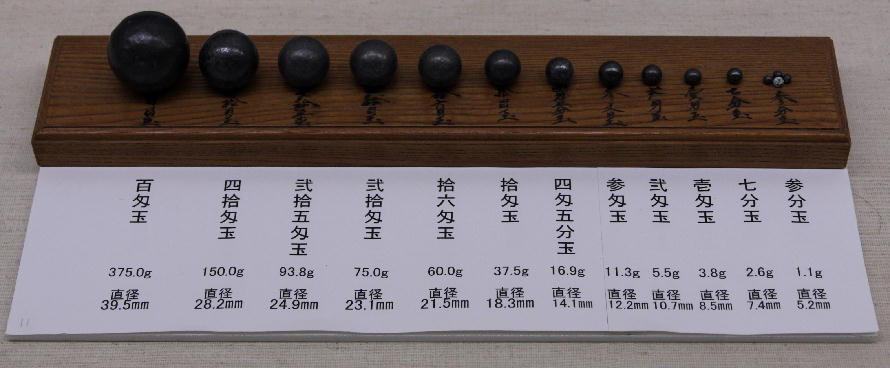 百匁玉
四拾匁玉
弐拾五匁玉
弐拾匁玉
拾六匁玉
拾匁玉
四匁五分玉
参匁玉
弐匁玉
壱匁玉
七分玉
参分玉
375.0g
150.0g
93.8g
75.0g
60.0g
37.5g
16.9g
11.3g
5.5g
3.8g
2.6g
1.1g
直径
直径
直径
直径
直径
直径
直径
直径
直径
直径
直径
直径
39.5mm
28.2mm
24.9mm
23.1mm
21.5mm
18.3mm
14.1mm
12.2mm
10.7mm
8.5mm
7.4mm
5.2mm
11